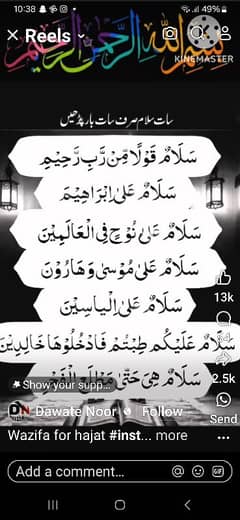 10:38
49%
بسم الله الرحمن الرحيم
Reels
KINEMASTER
سات سلام صرف سات بار پڑھیں
سَلَامٌ قَوْلًا مِّنْ رَّبٍّ رَّحِيْمٍ
سَلَامٌ عَلٰى اِبْرَاهِيْمَ
سَلَامٌ عَلٰى نُوْحٍ فِى الْعَالَمِيْنَ
سَلَامٌ عَلٰى مُوْسٰى وَهَارُوْنَ
سَلَامٌ عَلٰى اِلْيَاسِيْنَ
سَلَامٌ عَلَيْكُمْ طِبْتُمْ فَادْخُلُوْهَا خَالِدِيْنَ
سَلَامٌ هِىَ حَتّٰى
13k
2.5k
Show your supp...
Dawate Noor
Follow
Send
Wazifa for hajat #inst... more
Add a comment...
GIF